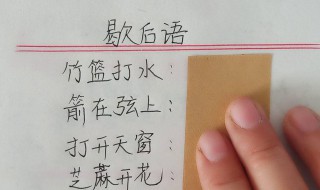 歇后语
竹篮打水：
箭在弦上：
打开天窗：
芝麻开花：